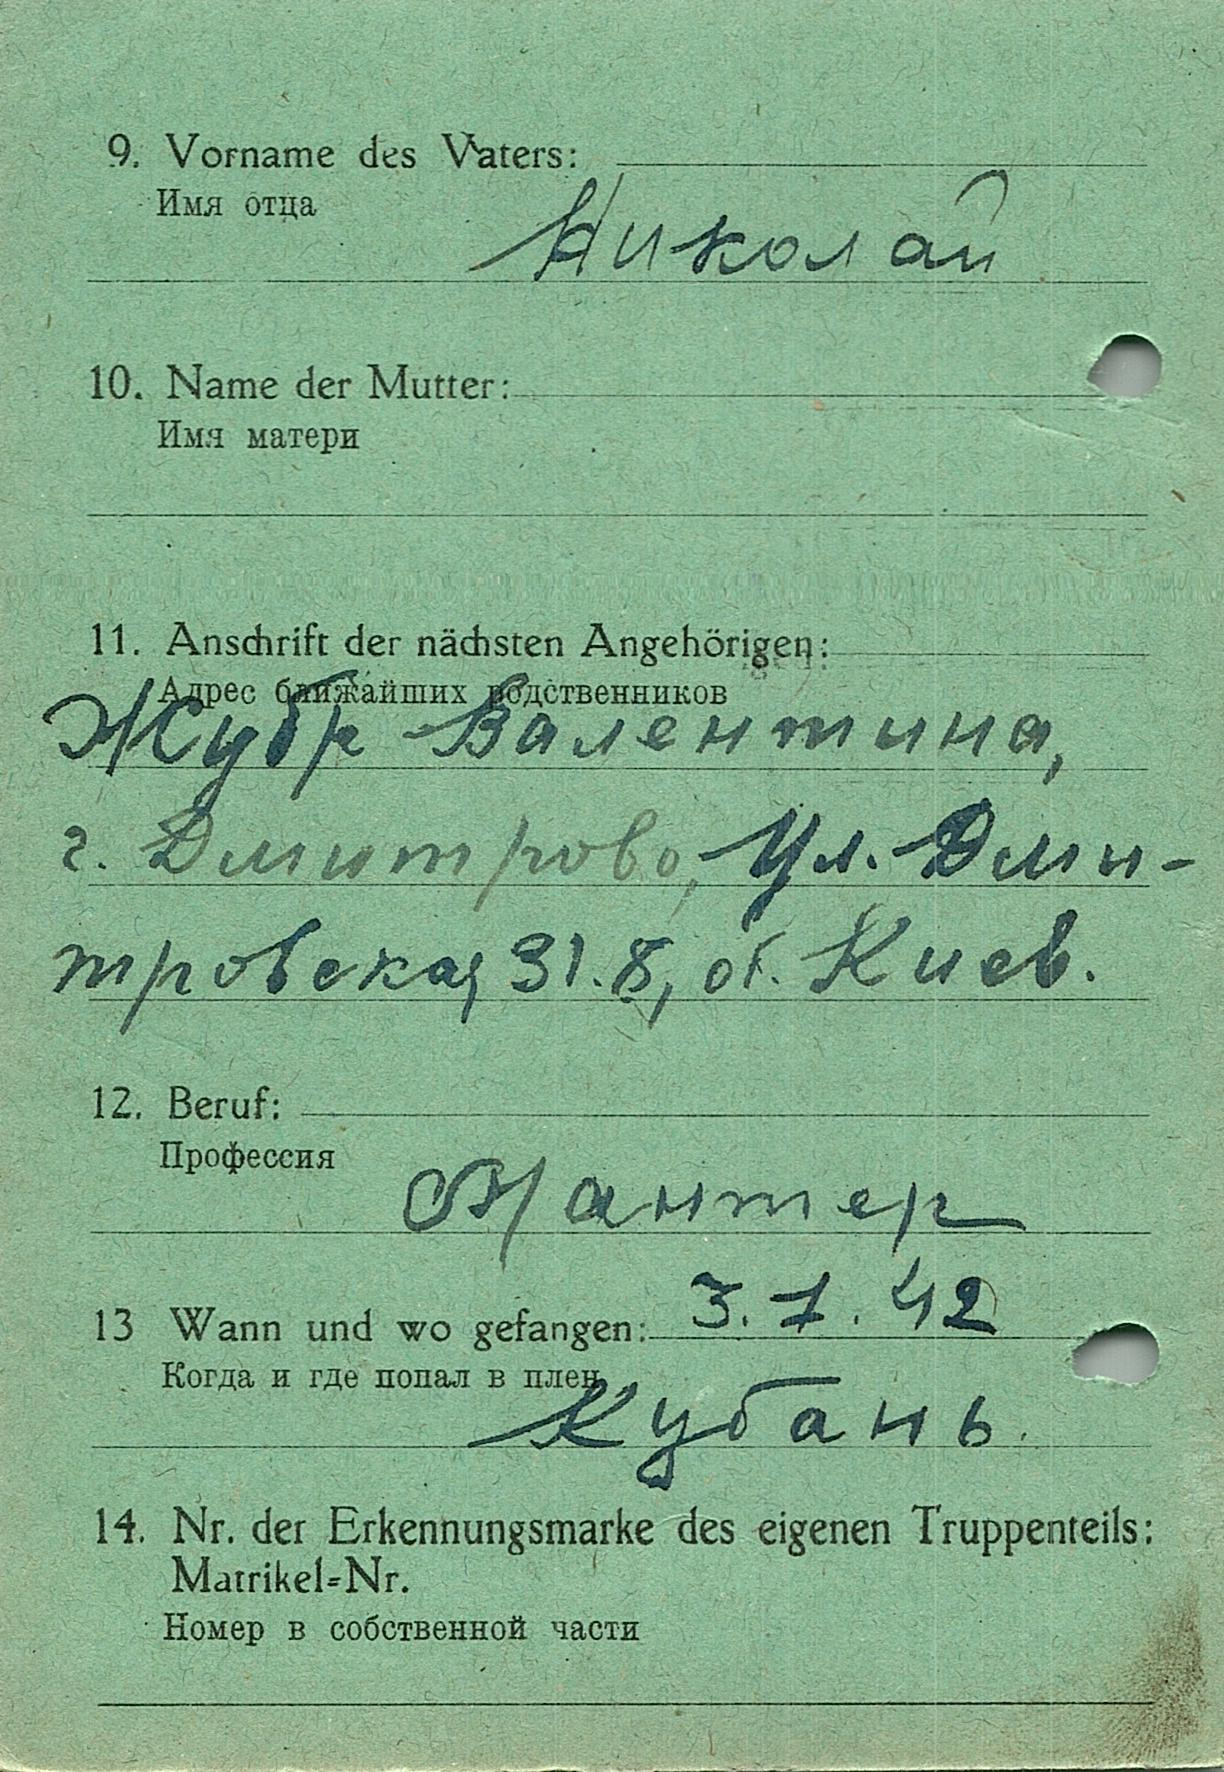 9. Vorname des Vaters:
Имя отца
Николай
10. Name der Mutter:
Имя матери
11. Anschrift der nächsten Angehörigen:
Адрес ближайших родственников
Жубр Валентина,
г. Дмитрово, Ул. Дми-
тровская 31.8, об. Киев.
12. Beruf:
Профессия
Мантер
13 Wann und wo gefangen: 3.7.42
Когда и где попал в плен
Кубань.
14. Nr. der Erkennungsmarke des eigenen Truppenteils:
Matrikel-Nr.
Номер в собственной части